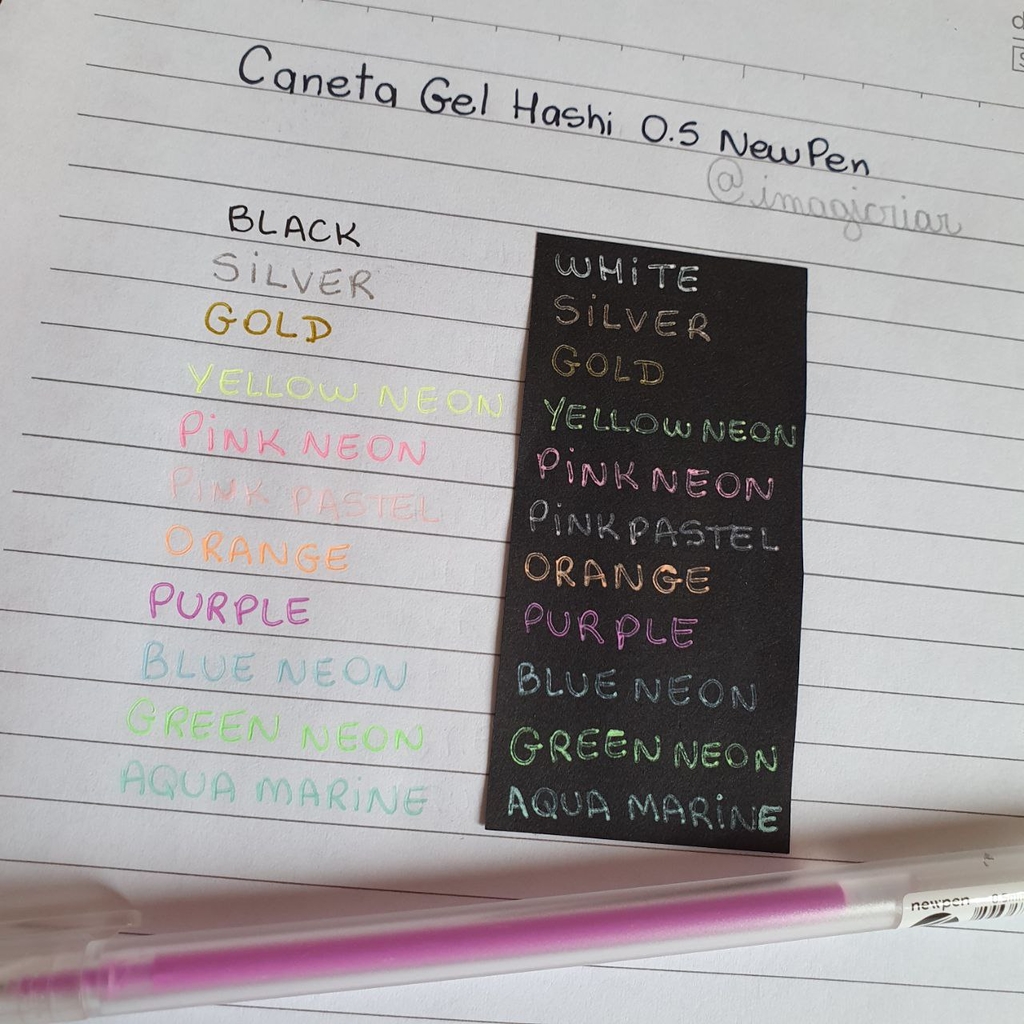 Caneta Gel Hashi 0.5 NewPen
@imagicriar
BLACK
SiLVER
GOLD
YELLOW NEON
PiNK NEON
PiNK PASTEL
ORANGE
PURPLE
BLUE NEON
GREEN NEON
AQUA MARiNE
WHiTE
SiLVER
GOLD
YELLOW NEON
PiNK NEON
PiNK PASTEL
ORANGE
PURPLE
BLUE NEON
GREEN NEON
AQUA MARiNE
newpen